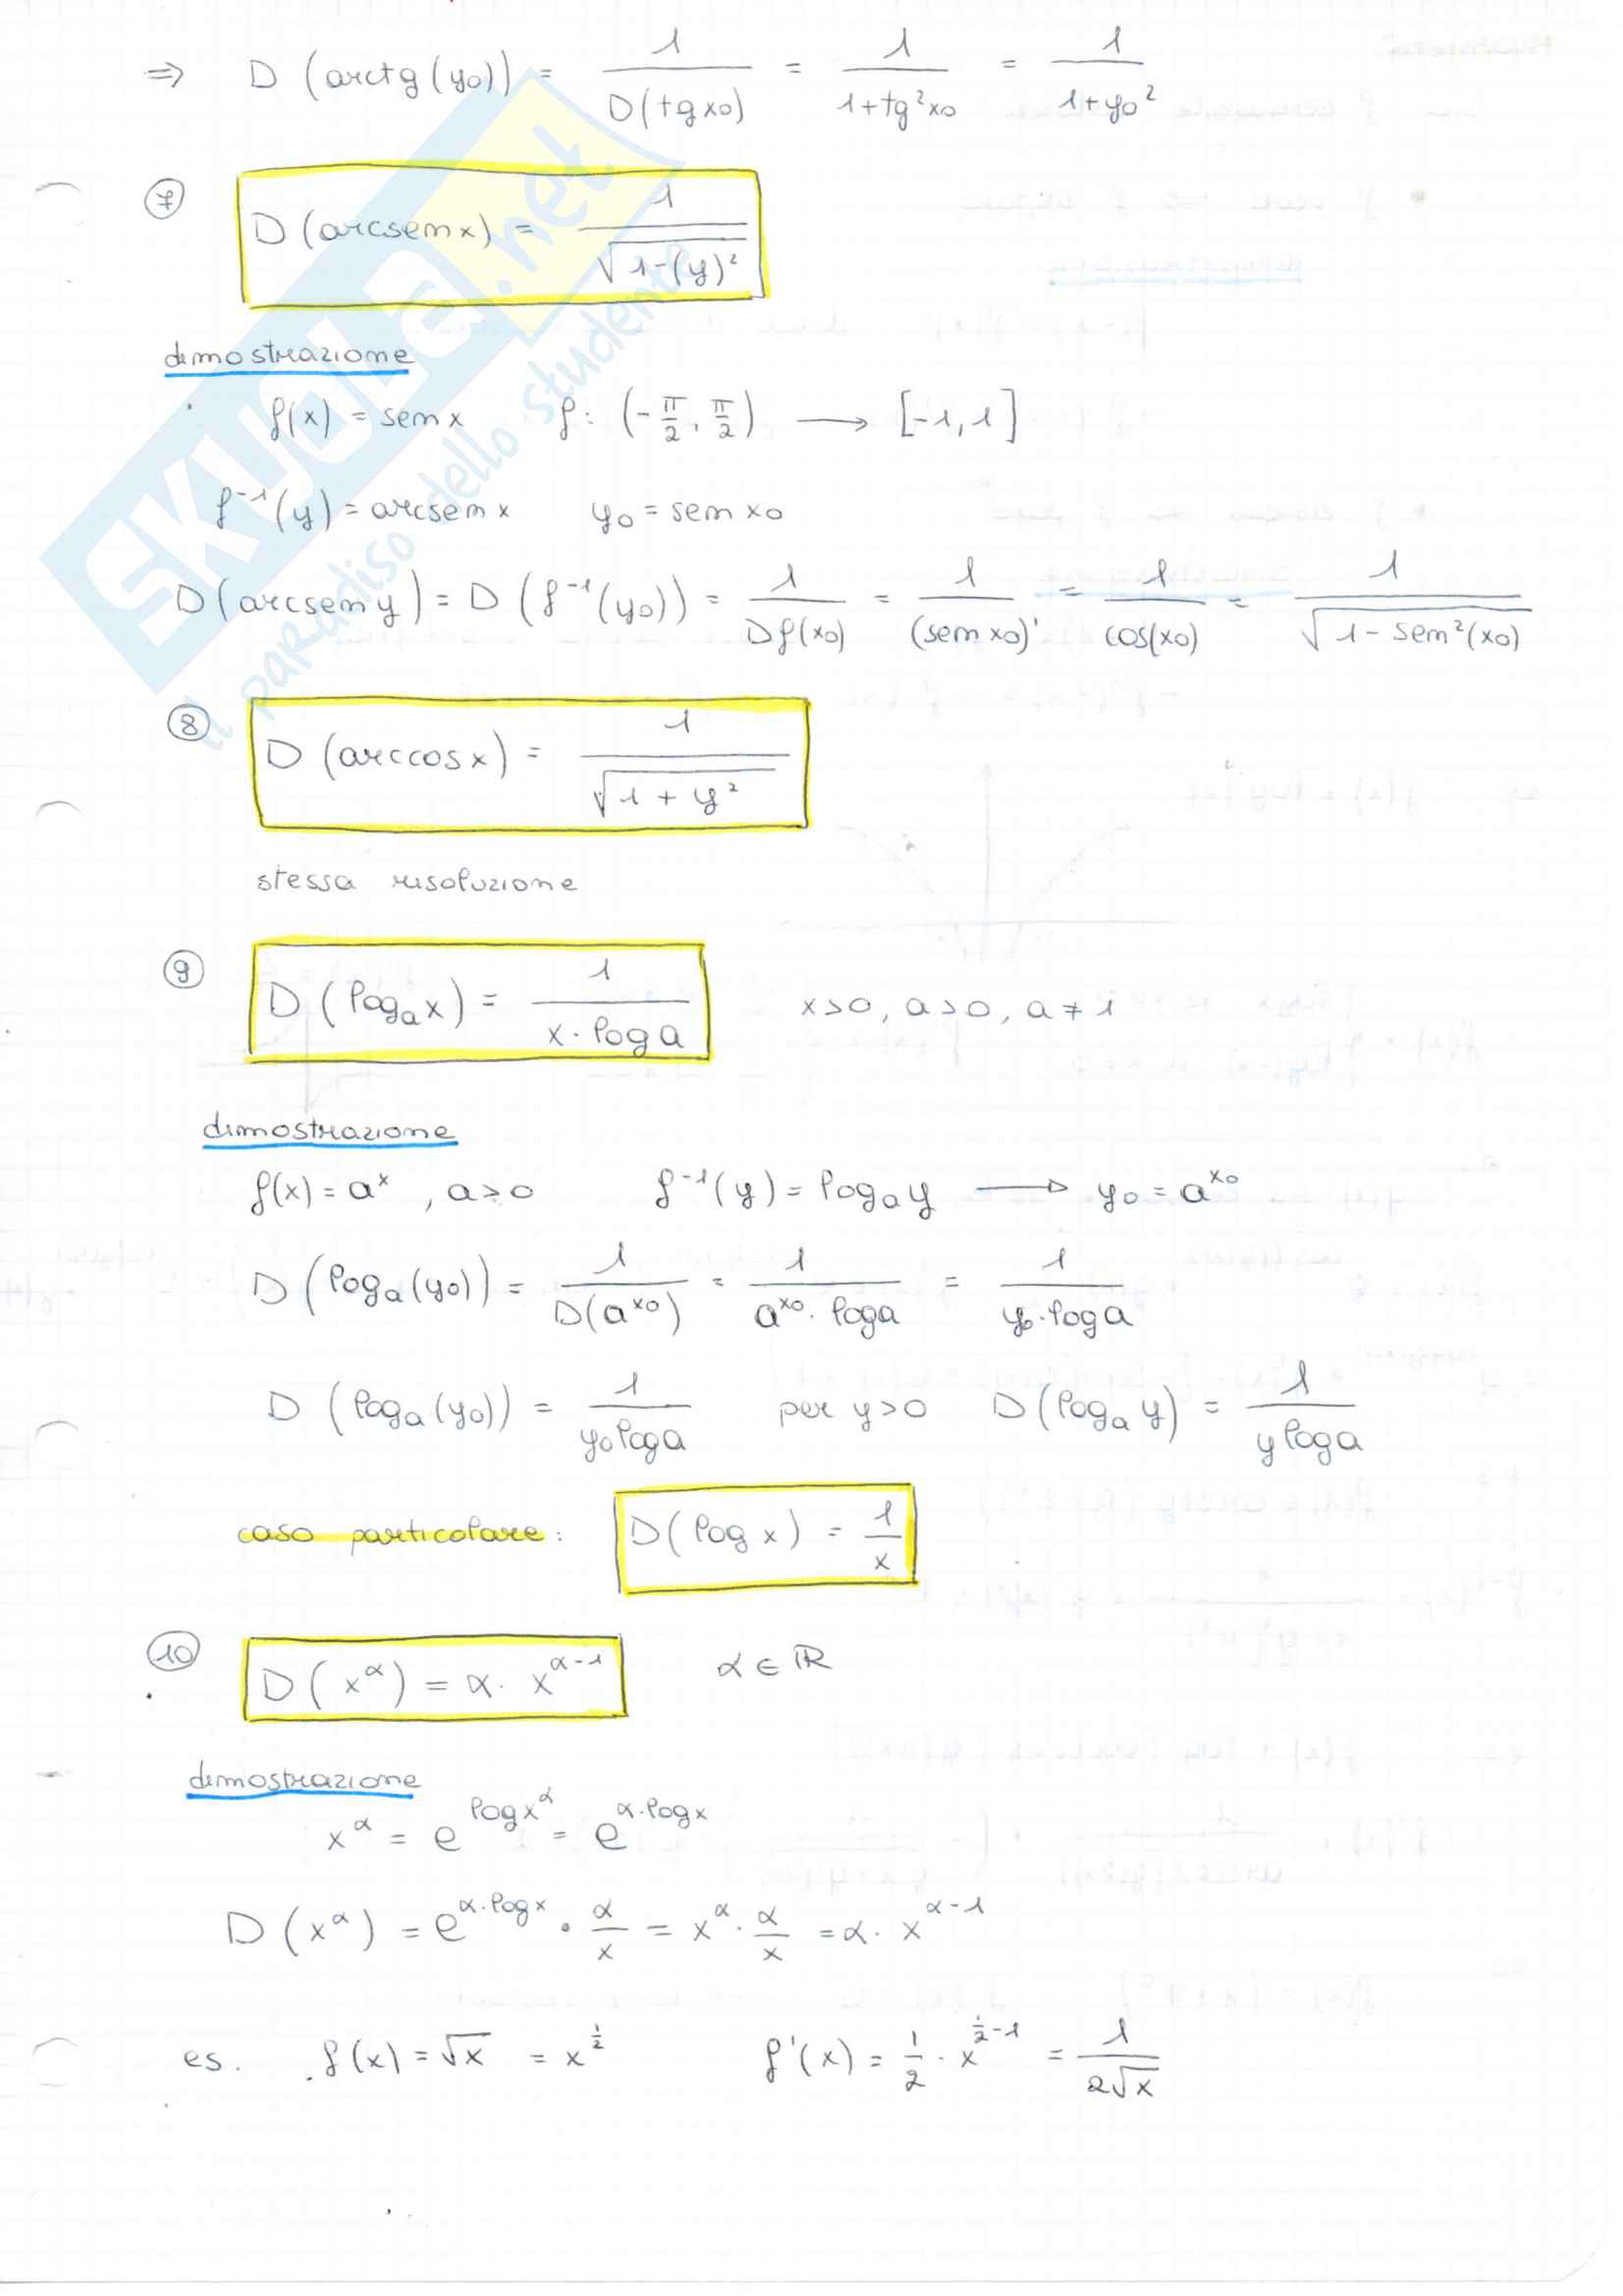 ⇒ D (arctg(y₀)) = 1/D(tg x₀) = 1/(1+tg²x₀) = 1/(1+y₀²)
⑦ D (arcsen x) = 1/√(1-(y)²)
dimostrazione
f(x) = sen x f: (-π/2, π/2) ⟶ [-1,1]
f⁻¹(y) = arcsen x y₀ = sen x₀
D(arcsen y) = D(f⁻¹(y₀)) = 1/Df(x₀) = 1/(sen x₀)' = 1/cos(x₀) = 1/√(1-sen²(x₀))
⑧ D (arccos x) = 1/√(1+y²)
stessa risoluzione
⑨ D (logₐx) = 1/(x·log a) x>0, a>0, a≠1
dimostrazione
f(x) = aˣ , a>0 f⁻¹(y) = logₐy ⟶ y₀ = a^x₀
D (logₐ(y₀)) = 1/D(a^x₀) = 1/(a^x₀·log a) = 1/(y₀·log a)
D (logₐ(y₀)) = 1/(y₀ log a) per y>0 D(logₐ y) = 1/(y log a)
caso particolare: D(log x) = 1/x
⑩ D(x^α) = α·x^(α-1) α∈ℝ
dimostrazione
x^α = e^(log x^α) = e^(α·log x)
D(x^α) = e^(α·log x) · α/x = x^α · α/x = α·x^(α-1)
es. f(x) = √x = x^(1/2) f'(x) = 1/2 · x^(1/2-1) = 1/(2√x)
SKUOLA.net
il paradiso dello studente